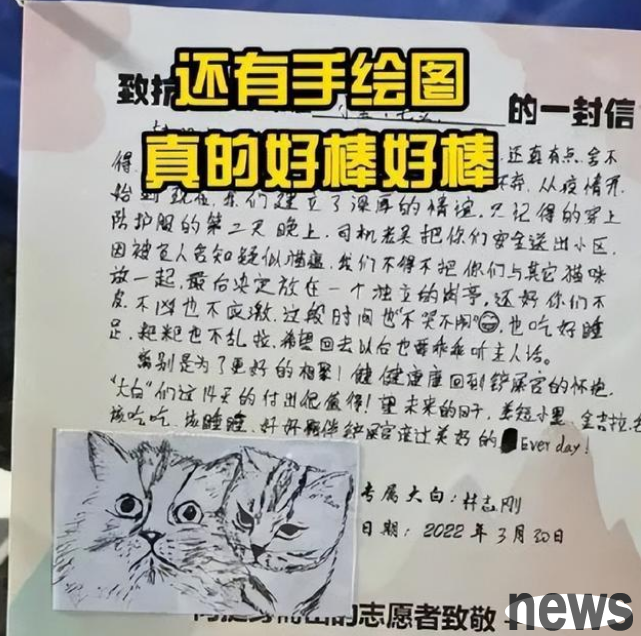 还有手绘图
致抗 的一封信
真的好棒好棒
得 还真有点舍不
始到现在,我们建立了深厚的情谊,只记得的穿上
防护服的第二天晚上,司机 把你们安全送出小区,
因被主人告知疑似猫瘟,我们不得不把你们与其它猫咪
放一起,最后决定放在一个独立的岗亭,还好你们不
皮、不凶也不应激,这段时间也"不哭不闹"😄,也吃好睡
足,起 也不乱拉,希望回去以后也要乖乖听主人话。
离别是为了更好的相聚!健健康康回到铲屎官的怀抱,
"大白"们这14天的付出很值得!望未来的日子,美短小黑、金吉拉
该吃吃、该睡睡,好好陪伴铲屎官度过美好的 Everday!
专属大白:林志刚
日期:2022年3月30日
的志愿者致敬
news